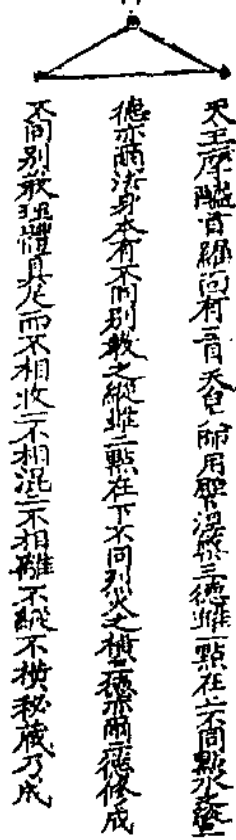 天王摩醯首羅面有三目天皃師用壁涅槃三德雖一點在上不同點水
德亦爾法身本有不同別教之縱雖二點在下不同烈火之橫二德亦爾二德修成
不同別教理體具足而不相收三不相混三不相離不縱不橫秘藏乃成